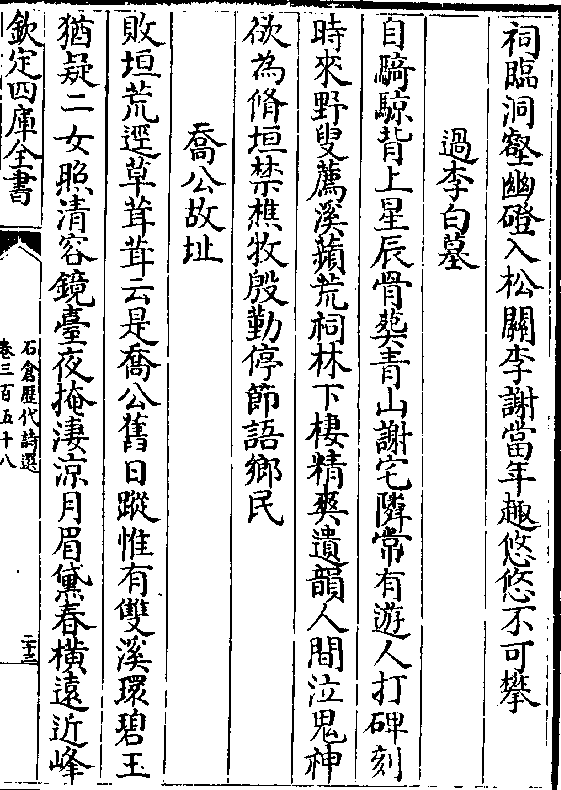 祠臨洞壑幽磴入松關李謝當年趣悠悠不可攀
過李白墓
自騎鯨背上星辰骨葬青山謝宅隣常有遊人打碑刻
時來野叟薦溪蘋荒祠林下棲精爽遺韻人間泣鬼神
欲為脩垣禁樵牧殷勤停節語鄉民
喬公故址
敗垣荒逕草茸茸云是喬公舊日蹤惟有雙溪環碧玉
猶疑二女照清容鏡臺夜掩淒涼月眉黛春橫遠近峰
欽定四庫全書
石倉歷代詩選
卷三百五十八
二十三